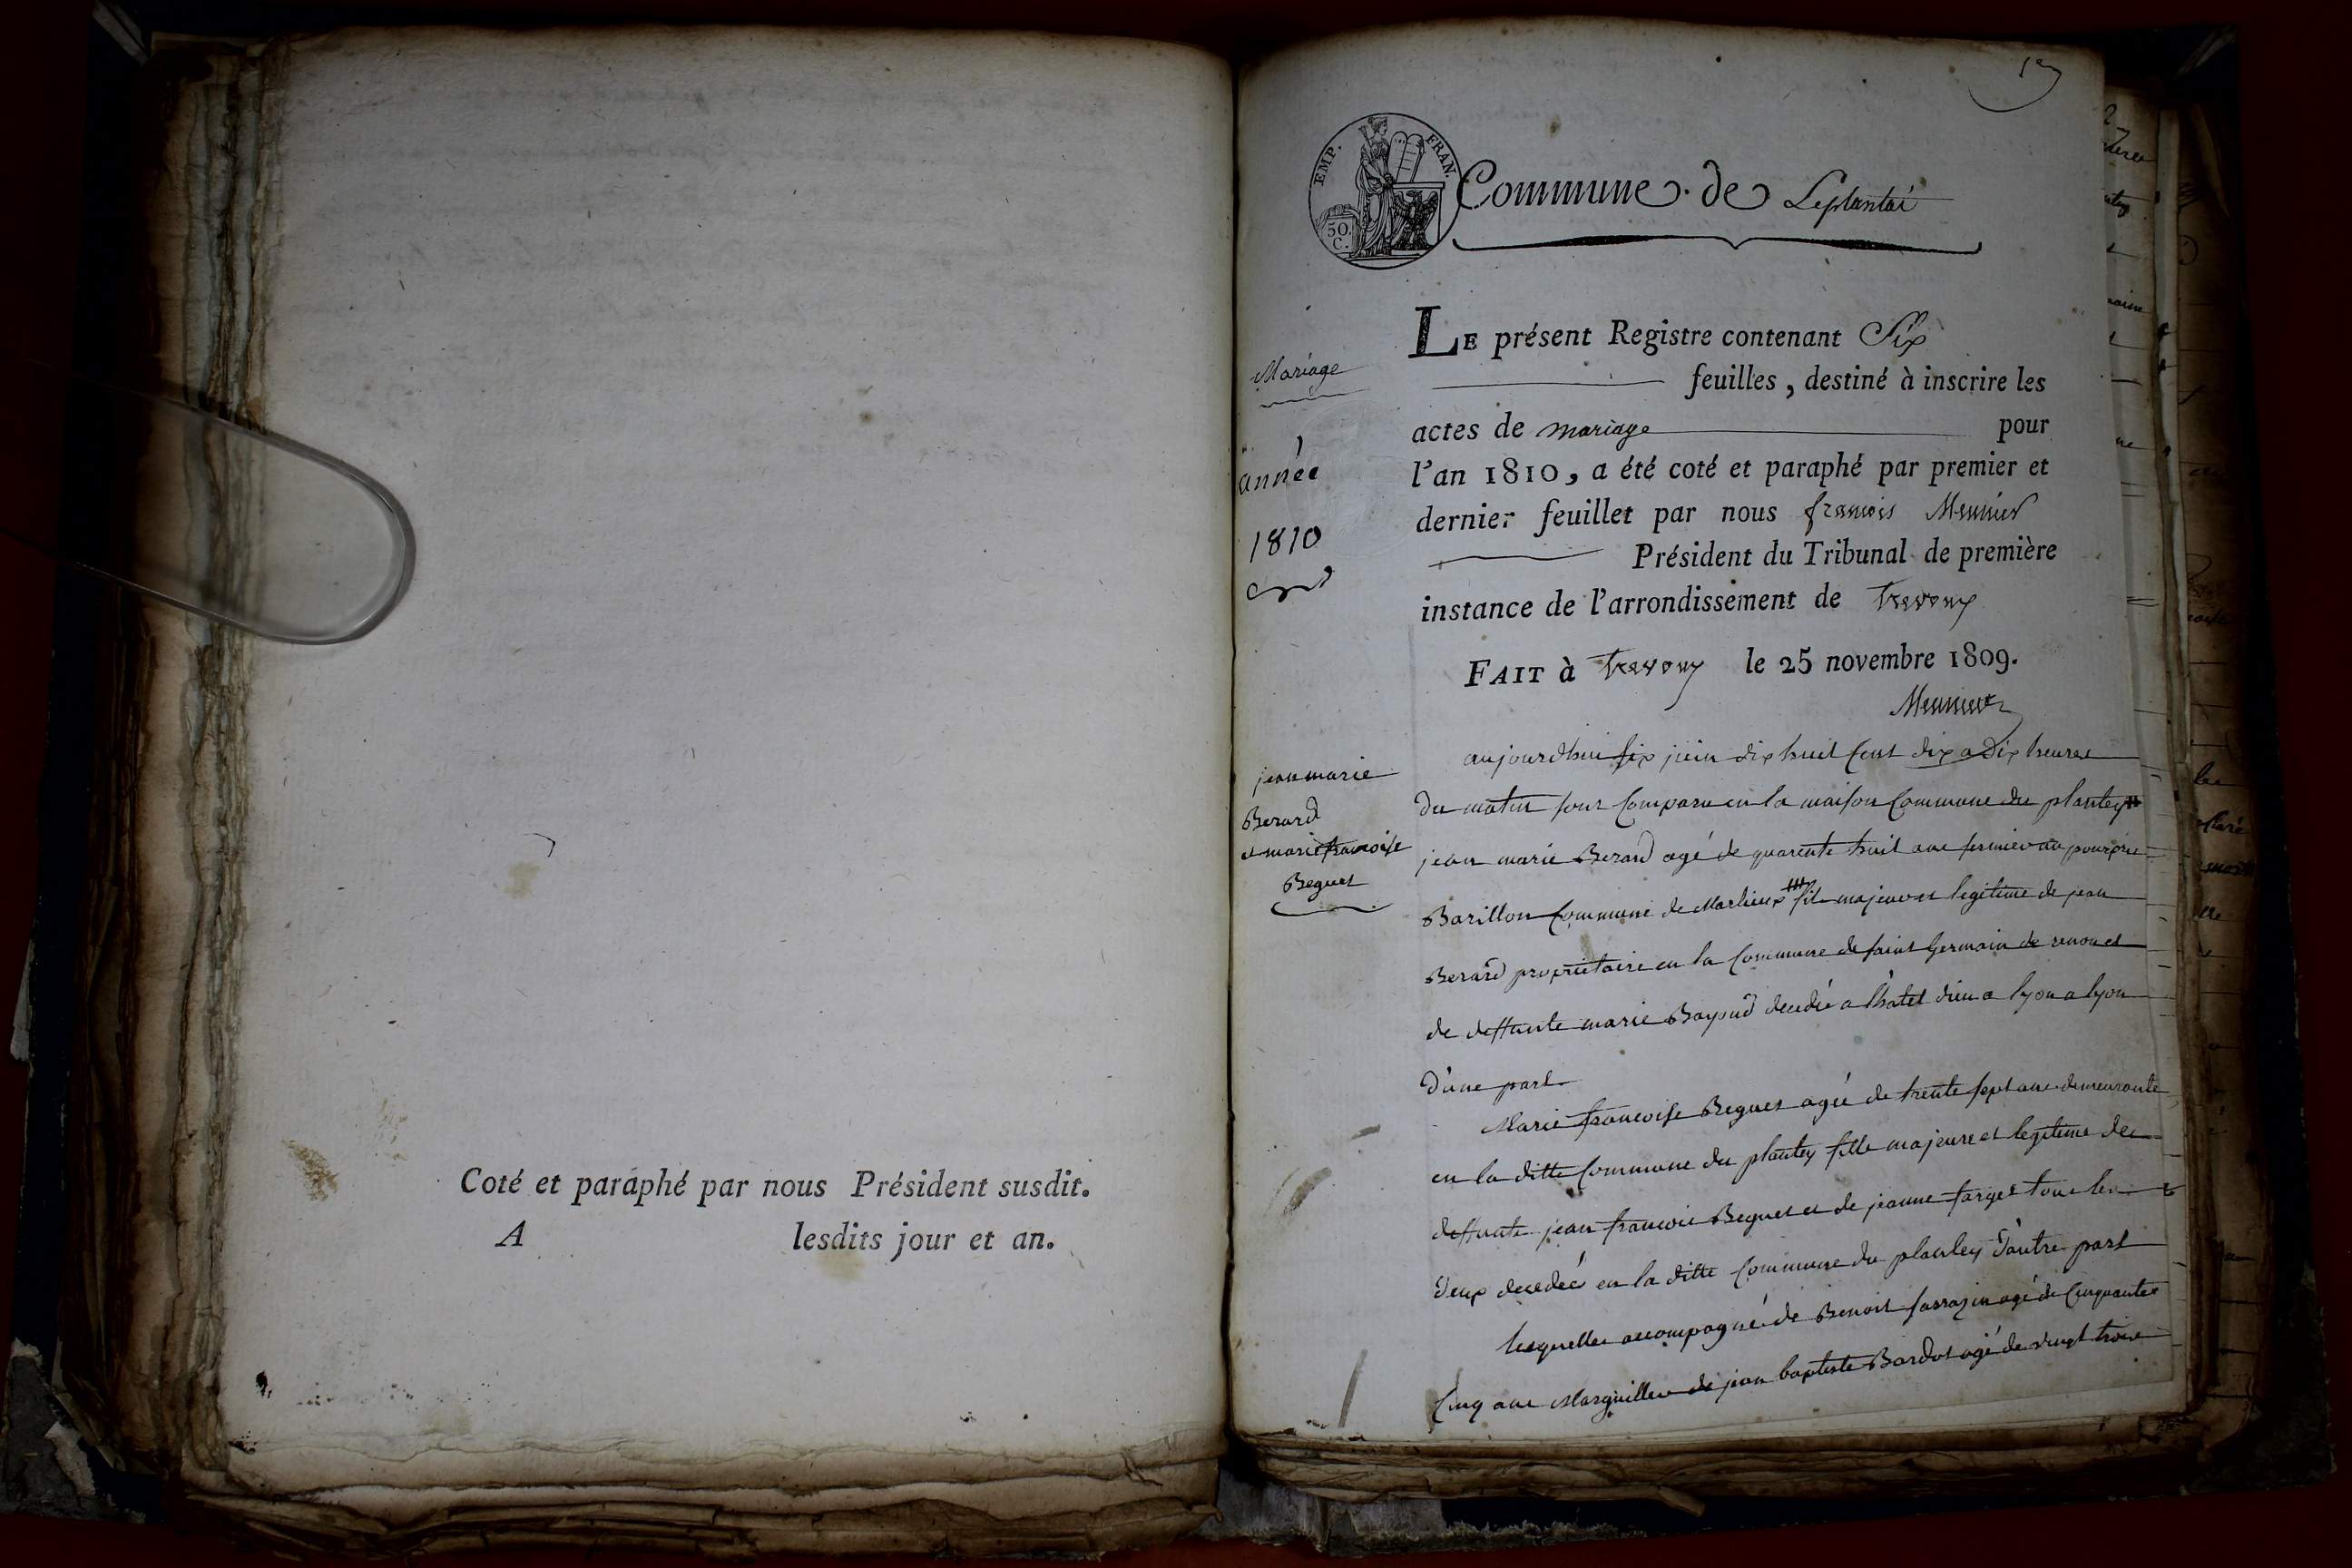 Coté et paraphé par nous Président susdit.
A lesdits jour et an.
1er
EMP. FRAN.
50.
C.
Commune de Leplantai
Mariage
année
1810
LE présent Registre contenant Six
feuilles, destiné à inscrire les
actes de mariage pour
l'an 1810, a été coté et paraphé par premier et
dernier feuillet par nous françois Meunier
Président du Tribunal de première
instance de l'arrondissement de Trevoux
FAIT à Trevoux le 25 novembre 1809.
Meunier
jean marie
Berard
et marie francoise
Beguet
aujourdhui six juin dix huit cent dix a dix heures
du matin sont comparu en la maison commune du plantey
jean marie Berard agé de quarente huit ans fermier au
Barillon commune de Marlieux fils majeur et legitime de jean
Berard proprietaire en la commune de saint germain de renon et
de deffunte marie Bayard decedé a lhôtel dieu a lyon a lyon
d'une part
Marie francoise Beguet agée de trente sept ans demeurante
en la ditte commune du plantey fille majeure et legitime de
deffunts jean francois Beguet et de jeanne farget tous les
deux decedés en la ditte commune du plantey d'autre part
lesquelles accompagné de Benoit sarrazin agé de cinquante
cinq ans Marguiller de jean baptiste Bardot agé de vingt trois